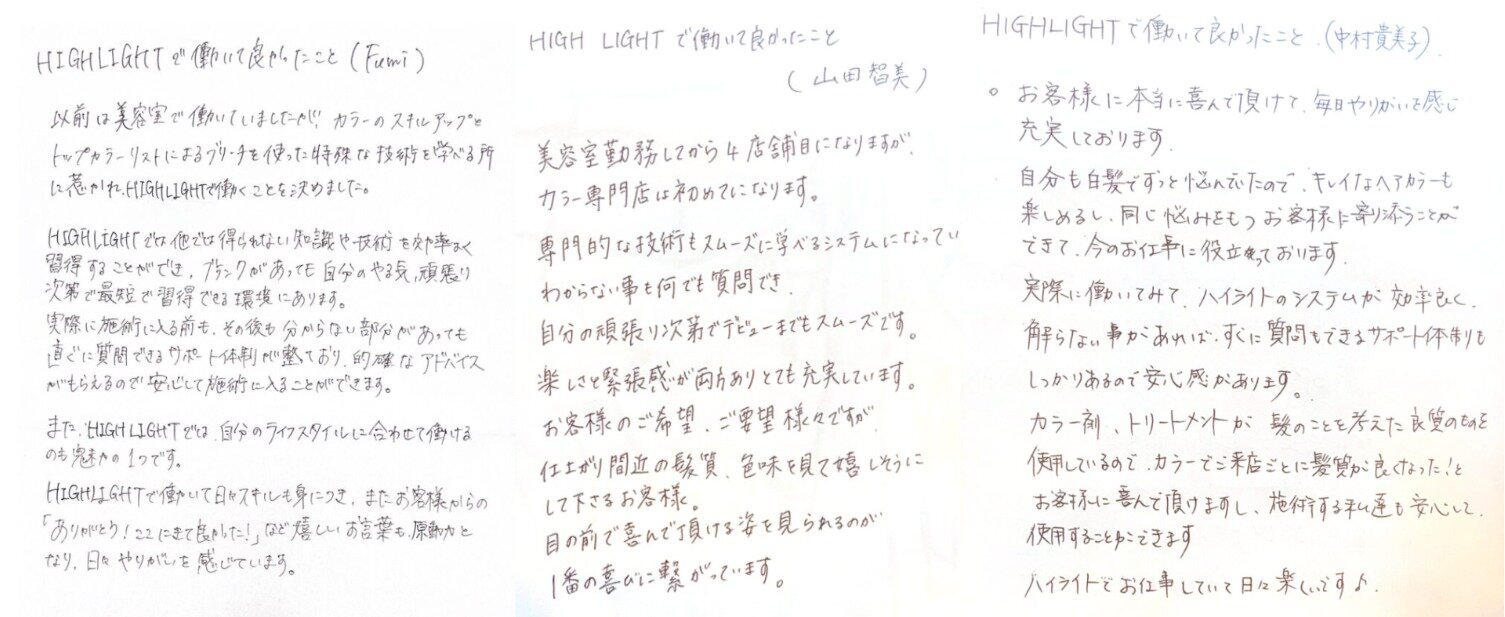 HIGHLIGHTで働いて良かったこと(Fumi)
以前は美容室で働いていましたが、カラーのスキルアップと
トップカラーリストによるブリーチを使った特殊な技術を学べる所
に惹かれ、HIGHLIGHTで働くことを決めました。
HIGHLIGHTでは他では得られない知識や技術を効率よく
習得することができ、ブランクがあっても自分のやる気、頑張り
次第で最短で習得できる環境にあります。
実際に施術に入る前も、その後も分からない部分があっても
直ぐに質問できるサポート体制が整っており、的確なアドバイス
がもらえるので安心して施術に入ることができます。
また、HIGHLIGHTでは、自分のライフスタイルに合わせて働ける
のも魅力の1つです。
HIGHLIGHTで働いて日々スキルも身につき、またお客様からの
「ありがとう!ここにきて良かった!」など嬉しいお言葉も原動力と
なり、日々やりがいを感じています。
HIGH LIGHTで働いて良かったこと
(山田智美)
美容室勤務してから4店舗目になりますが、
カラー専門店は初めてになります。
専門的な技術もスムーズに学べるシステムになってい
わからない事も何でも質問でき、
自分の頑張り次第でデビューまでもスムーズです。
楽しさと緊張感が両方ありとても充実しています。
お客様のご希望、ご要望様々ですが、
仕上がり間近の髪質、色味を見て嬉しそうに
して下さるお客様。
目の前で喜んで頂ける姿を見られるのが
1番の喜びに繋がっています。
HIGHLIGHTで働いて良かったこと.(中村貴美子).
○ お客様に本当に喜んで頂けて、毎日やりがいを感じ
充実しております。
自分も白髪でずっと悩んでいたので、キレイなヘアカラーも
楽しめるし、同じ悩みをもつお客様に寄り添うことが
できて、今のお仕事に役立っております。
実際に働いてみて、ハイライトのシステムが効率良く、
解らない事があれば、すぐに質問もできるサポート体制も
しっかりあるので安心感があります。
カラー剤、トリートメントが髪のことを考えた良質のものを
使用しているので、カラーでご来店ごとに髪質が良くなった!と
お客様に喜んで頂けますし、施術する私達も安心して、
使用することができます
ハイライトでお仕事していて日々楽しいです♪